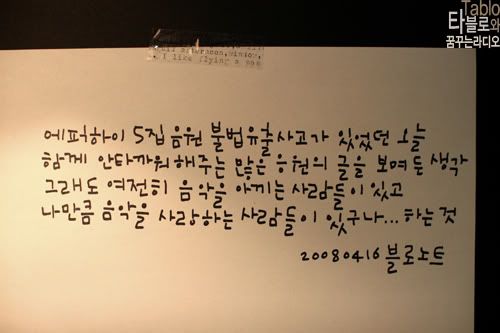 Tablo
타블로와
꿈꾸는라디오
I like flying a
에픽하이 5집 음원 불법유출사고가 있었던 오늘
함께 안타까워해주는 많은 응원의 글을 보며 든 생각
그래도 여전히 음악을 아끼는 사람들이 있고
나만큼 음악을 사랑하는 사람들이 있구나... 하는 것
20080416 블로노트